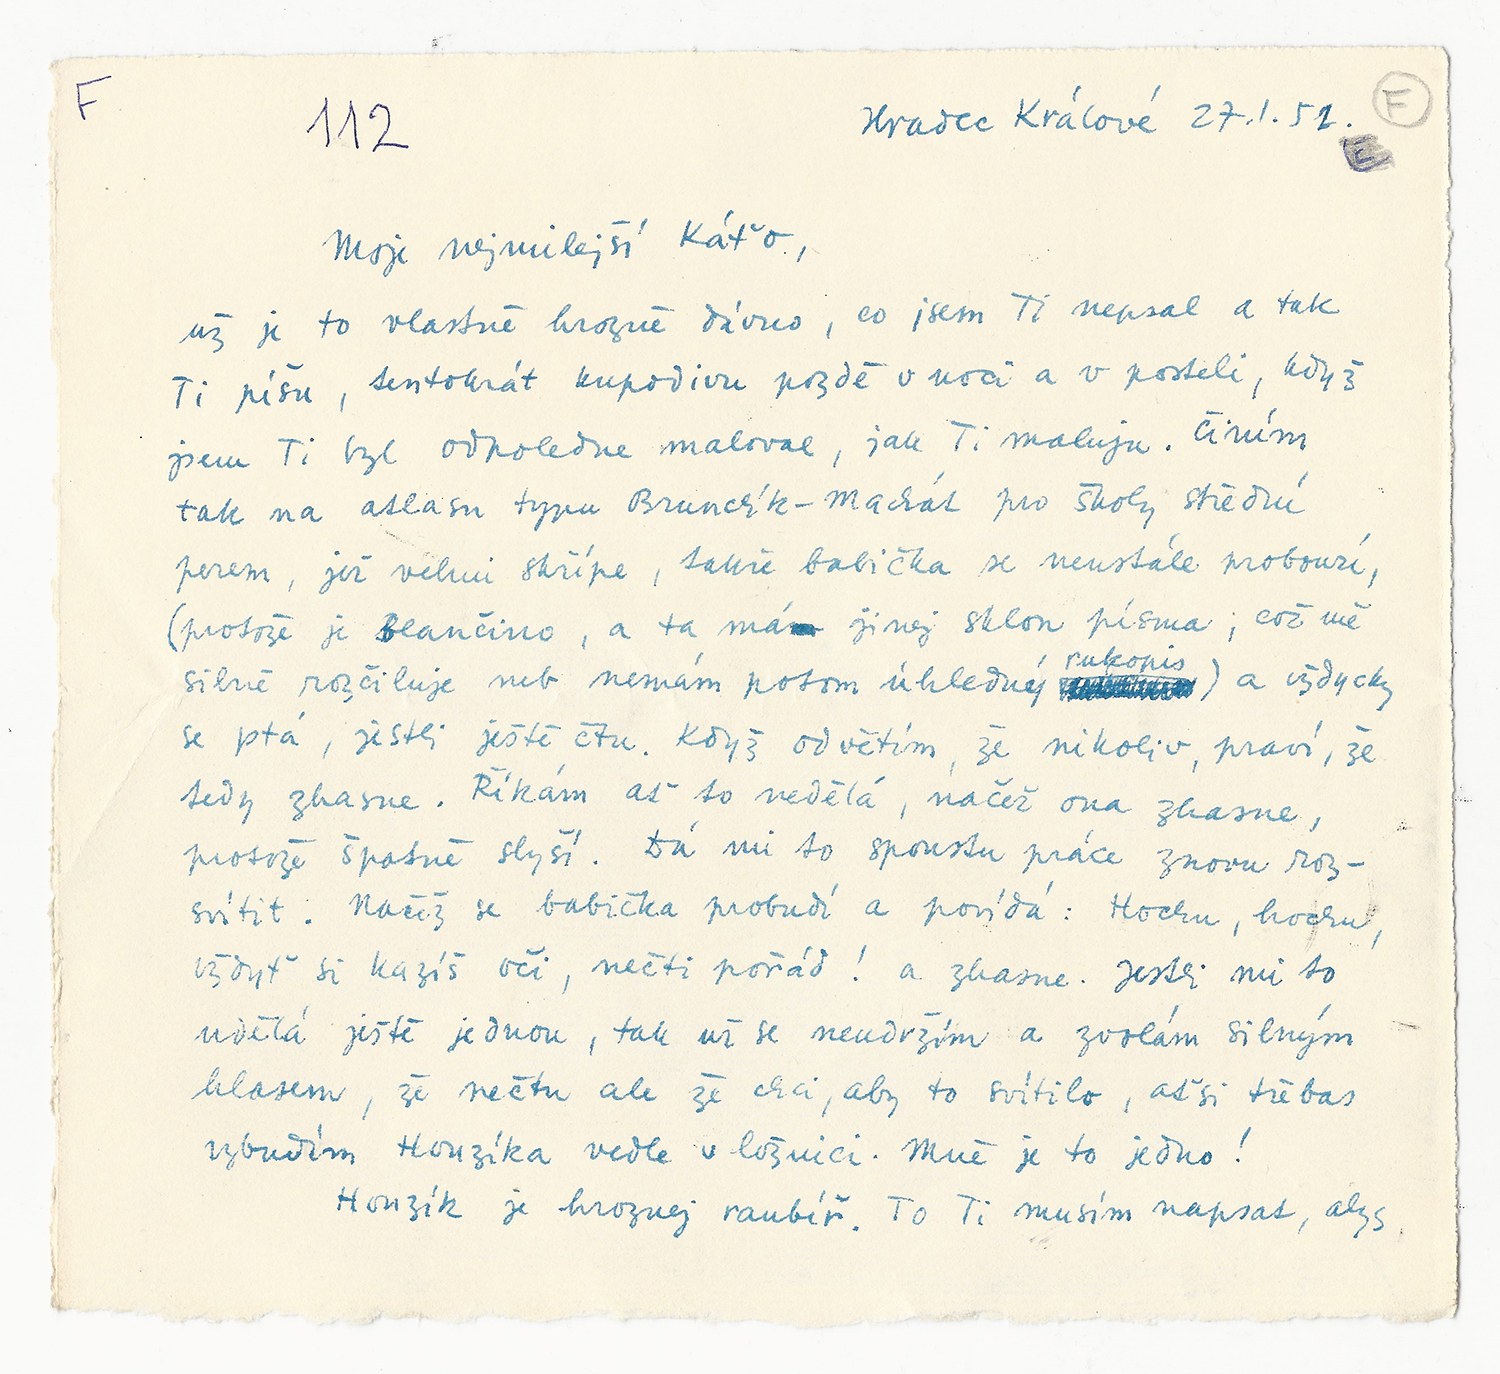 F
112
Hradec Králové 27.I.51.
F
Moje nejmilejší Káťo,
už je to vlastně hrozně dávno, co jsem Ti nepsal a tak
Ti píšu, tentokrát kupodivu pozdě v noci a v posteli, když
jsem Ti byl odpoledne maloval, jak Ti maluju. Činím
tak na atlasu typu Brunclík-Machát pro školy střední
perem, jež velmi skřípe, takže babička se neustále probouzí,
(protože je Blančino, a ta má jinej sklon písma; což mě
silně rozčiluje neb nemám potom úhledný rukopis) a vždycky
se ptá, jestli ještě čtu. Když odvětím, že nikoliv, praví, že
tedy zhasne. Říkám ať to nedělá, načež ona zhasne,
protože špatně slyší. Dá mi to spoustu práce znovu roz-
svítit. Načež se babička probudí a povídá: Hochu, hochu,
vždyť si kazíš oči, nečti pořád! a zhasne. Jestli mi to
udělá ještě jednou, tak už se neudržím a zvolám silným
hlasem, že nečtu ale že chci, aby to svítilo, ať si třebas
vzbudím Honzíka vedle v ložnici. Mně je to jedno!
Honzík je hroznej raubíř. To Ti musím napsat, abys